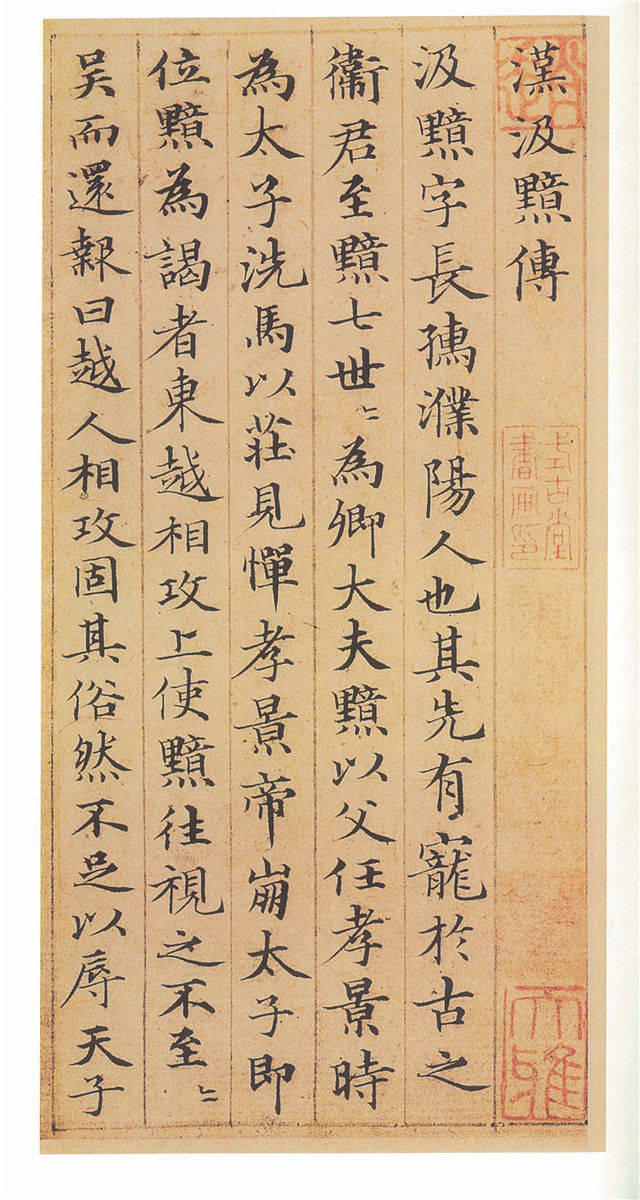 漢汲黯傳
汲黯字長孺濮陽人也其先有寵於古之
衛君至黯七世〻為卿大夫黯以父任孝景時
為太子洗馬以莊見憚孝景帝崩太子即
位黯為謁者東越相攻上使黯往視之不至〻
吴而還報曰越人相攻固其俗然不足以辱天子
式古堂書畫印
大雅